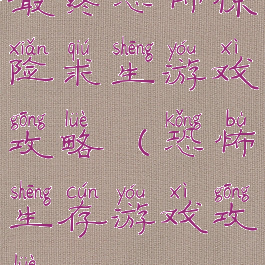 最终
xiǎn qiú shēng yóu xì
险求生游戏
gōng luè kǒng bù
攻略（恐怖
shēng cún yóu xì gōng
生存游戏攻
luè